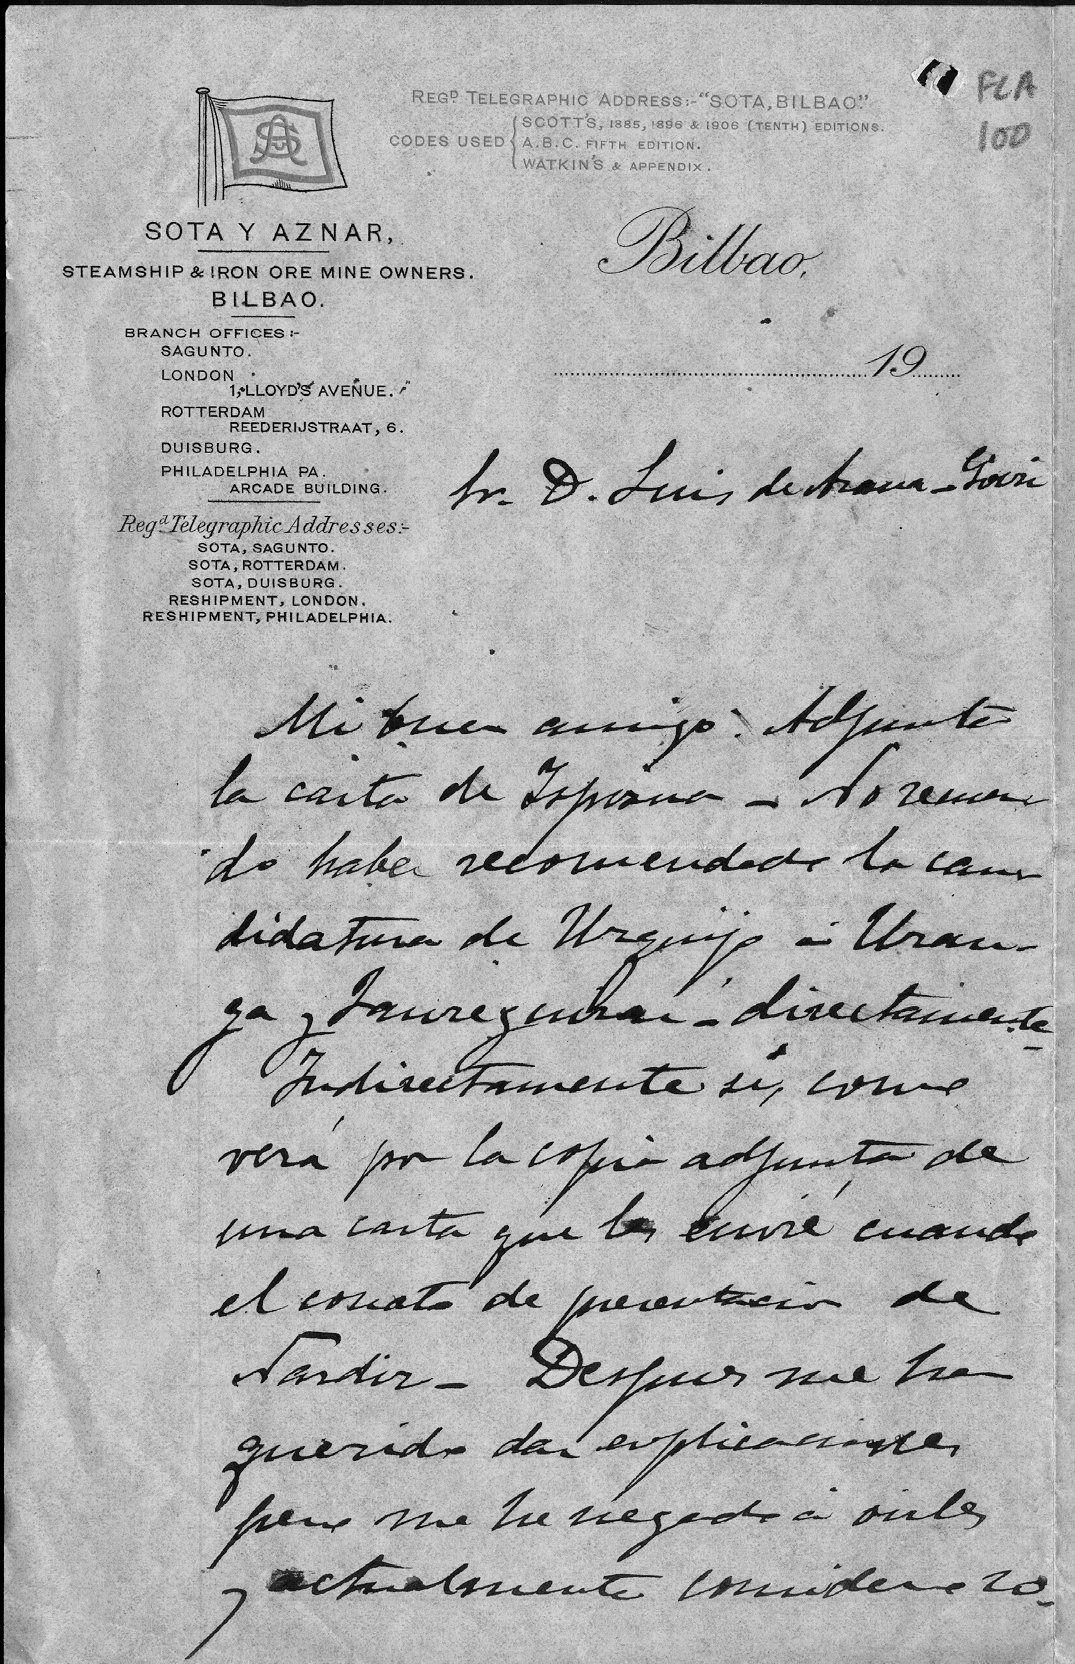 FLA
100
REGD. TELEGRAPHIC ADDRESS:-"SOTA, BILBAO."
CODES USED { SCOTT'S, 1885, 1896 & 1906 (TENTH) EDITIONS.
A.B.C. FIFTH EDITION.
WATKIN'S & APPENDIX.
SOTA Y AZNAR,
STEAMSHIP & IRON ORE MINE OWNERS.
BILBAO.
BRANCH OFFICES:-
SAGUNTO.
LONDON
1, LLOYD'S AVENUE.
ROTTERDAM
REEDERIJSTRAAT, 6.
DUISBURG.
PHILADELPHIA PA.
ARCADE BUILDING.
Regd. Telegraphic Addresses:-
SOTA, SAGUNTO.
SOTA, ROTTERDAM.
SOTA, DUISBURG.
RESHIPMENT, LONDON.
RESHIPMENT, PHILADELPHIA.
Bilbao,
19
Sr. D. Luis de Arana-Goiri
Mi buen amigo: Adjunta
la carta de - No recuer
do haber recomendado la can
didatura de Urquijo á Uran-
ga y Jaureguizar - directamente
Indirectamente sí, como
verá por la copia adjunta de
una carta que les envié cuando
el conato de presentacion de
Nardiz - Despues me han
querido dar explicaciones
pero me he negado á oirles
y actualmente considero ro-